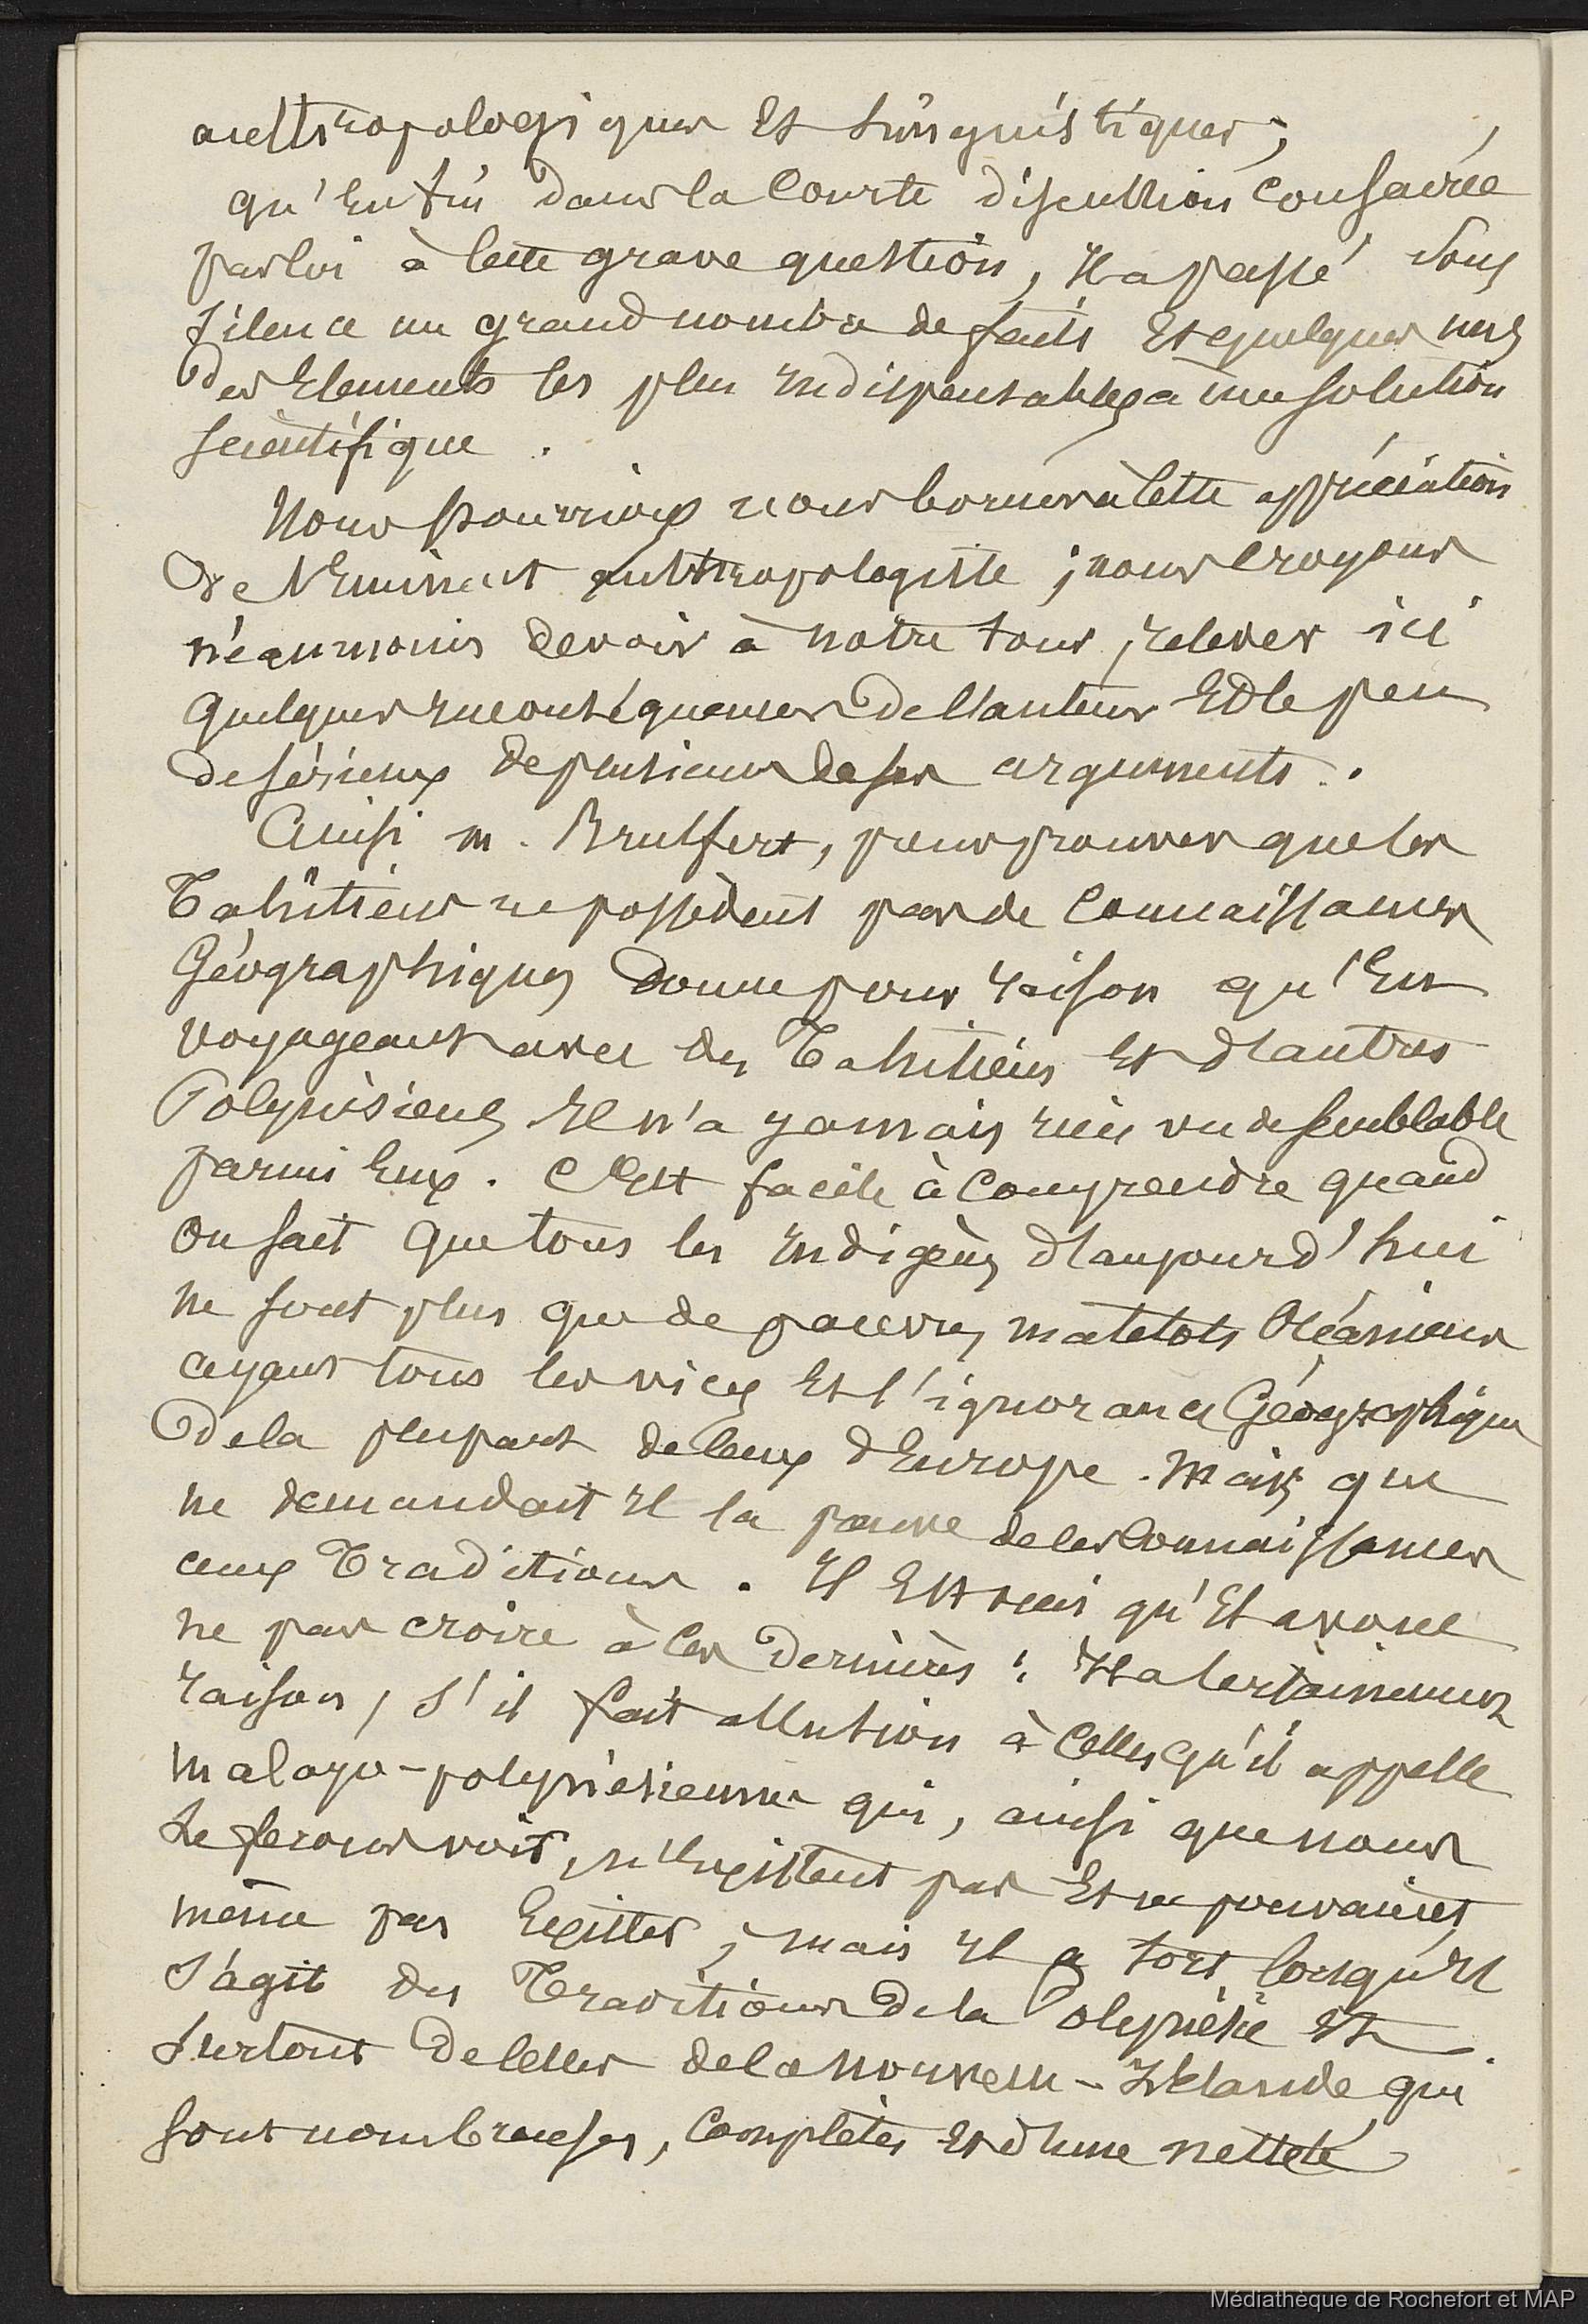 anthropologiques et linguistiques ;
qu'enfin dans la courte discussion consacrée
par lui à cette grave question, il a passé sous
silence un grand nombre de faits et quelques uns
des éléments les plus indispensables à une solution
scientifique .
Nous pourrions nous borner à cette appréciation
de l'Eminent anthropologiste ; nous croyons
néanmoins devoir à notre tour, relever ici
quelques inconséquences de l'auteur et le peu
de sérieux de plusieurs de ses arguments .
Ainsi m. Brulfert, pour prouver que les
Tahitiens ne possèdent pas de connaissances
Géographiques donne pour raison qu'en
voyageant avec des Tahitiens et d'autres
Polynésiens il n'a jamais rien vu de semblable
parmi eux . C'est facile à comprendre quand
on sait que tous les indigènes d'aujourd'hui
ne sont plus que de pauvres matelots océaniens
ayant tous les vices et l'ignorance Géographique
de la plupart de ceux d'Europe . Mais que
ne demandait il la preuve de ces connaissances
aux Traditions . Il est vrai qu'il avoue
ne pas croire à ces dernières : Il a certainement
raison, s'il fait allusion à celles qu'il appelle
malayo-polynésiennes qui, ainsi que nous
le ferons voir, n'existent pas et ne pouvaient
même pas exister ; mais il a tort lorsqu'il
s'agit des Traditions de la Polynésie et
surtout de celles de la nouvelle-Zélande qui
sont nombreuses, complètes et d'une netteté
Médiathèque de Rochefort et MAP